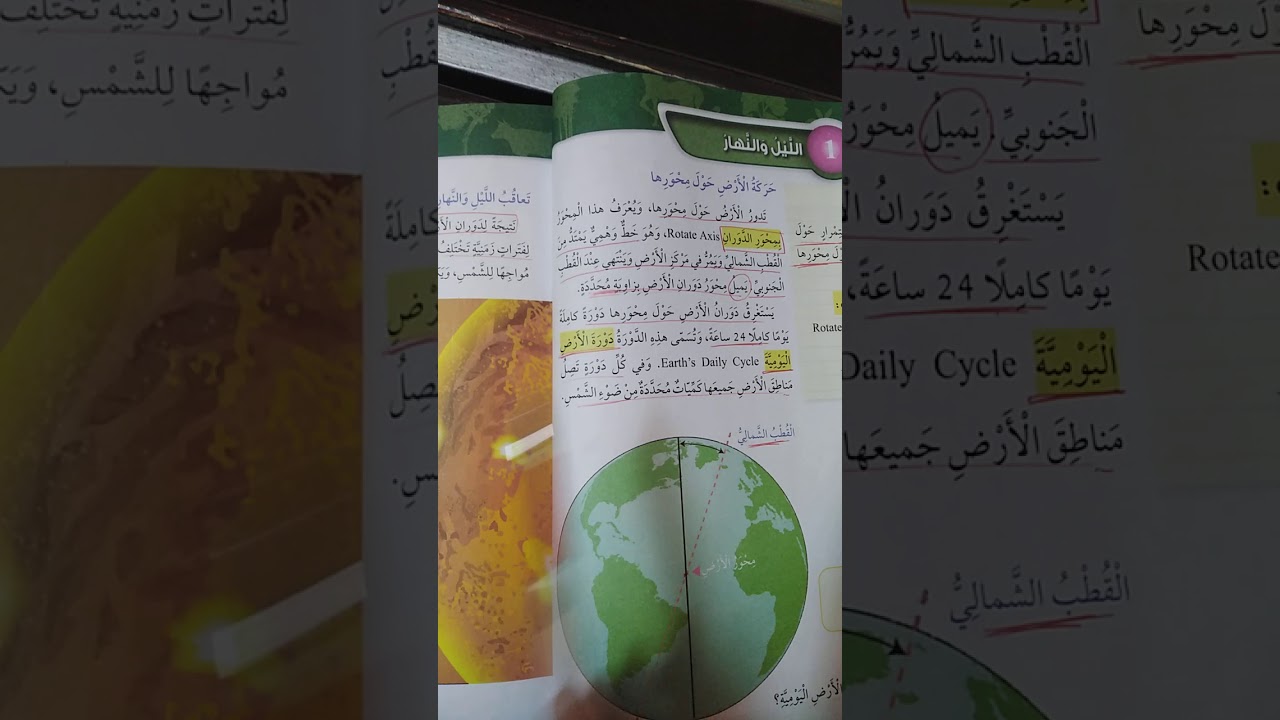 1 اللَّيْلُ وَالنَّهارُ
حَرَكَةُ الْأَرْضِ حَوْلَ مِحْوَرِها
تَدورُ الْأَرْضُ حَوْلَ مِحْوَرِها، وَيُعْرَفُ هذا الْمِحْوَرُ
بِمِحْوَرِ الدَّوَرانِ Rotate Axis، وَهُوَ خَطٌّ وَهْمِيٌّ يَمْتَدُّ مِنَ
الْقُطْبِ الشَّمالِيِّ وَيَمُرُّ في مَرْكَزِ الْأَرْضِ وَيَنْتَهي عِنْدَ الْقُطْبِ
الْجَنوبِيِّ. يَميلُ مِحْوَرُ دَوَرانِ الْأَرْضِ بِزاوِيَةٍ مُحَدَّدَةٍ.
يَسْتَغْرِقُ دَوَرانُ الْأَرْضِ حَوْلَ مِحْوَرِها دَوْرَةً كامِلَةً
يَوْمًا كامِلًا 24 ساعَةً، وَتُسَمّى هذِهِ الدَّوْرَةُ دَوْرَةَ الْأَرْضِ
الْيَوْمِيَّةَ Earth's Daily Cycle. وَفي كُلِّ دَوْرَةٍ تَصِلُ
مَناطِقَ الْأَرْضِ جَميعَها كَمِّيّاتٌ مُحَدَّدَةٌ مِنْ ضَوْءِ الشَّمْسِ.
الْقُطْبُ الشَّمالِيُّ
مِحْوَرُ الْأَرْضِ
الْأَرْضِ الْيَوْمِيَّةِ؟
حَوْلَ
مِحْوَرِها
Rotate
تَعاقُبُ اللَّيْلِ وَالنَّهارِ
نَتيجَةً لِدَوَرانِ
لِفَتَراتٍ زَمَنِيَّةٍ تَخْتَلِفُ
مُواجِهًا لِلشَّمْسِ،